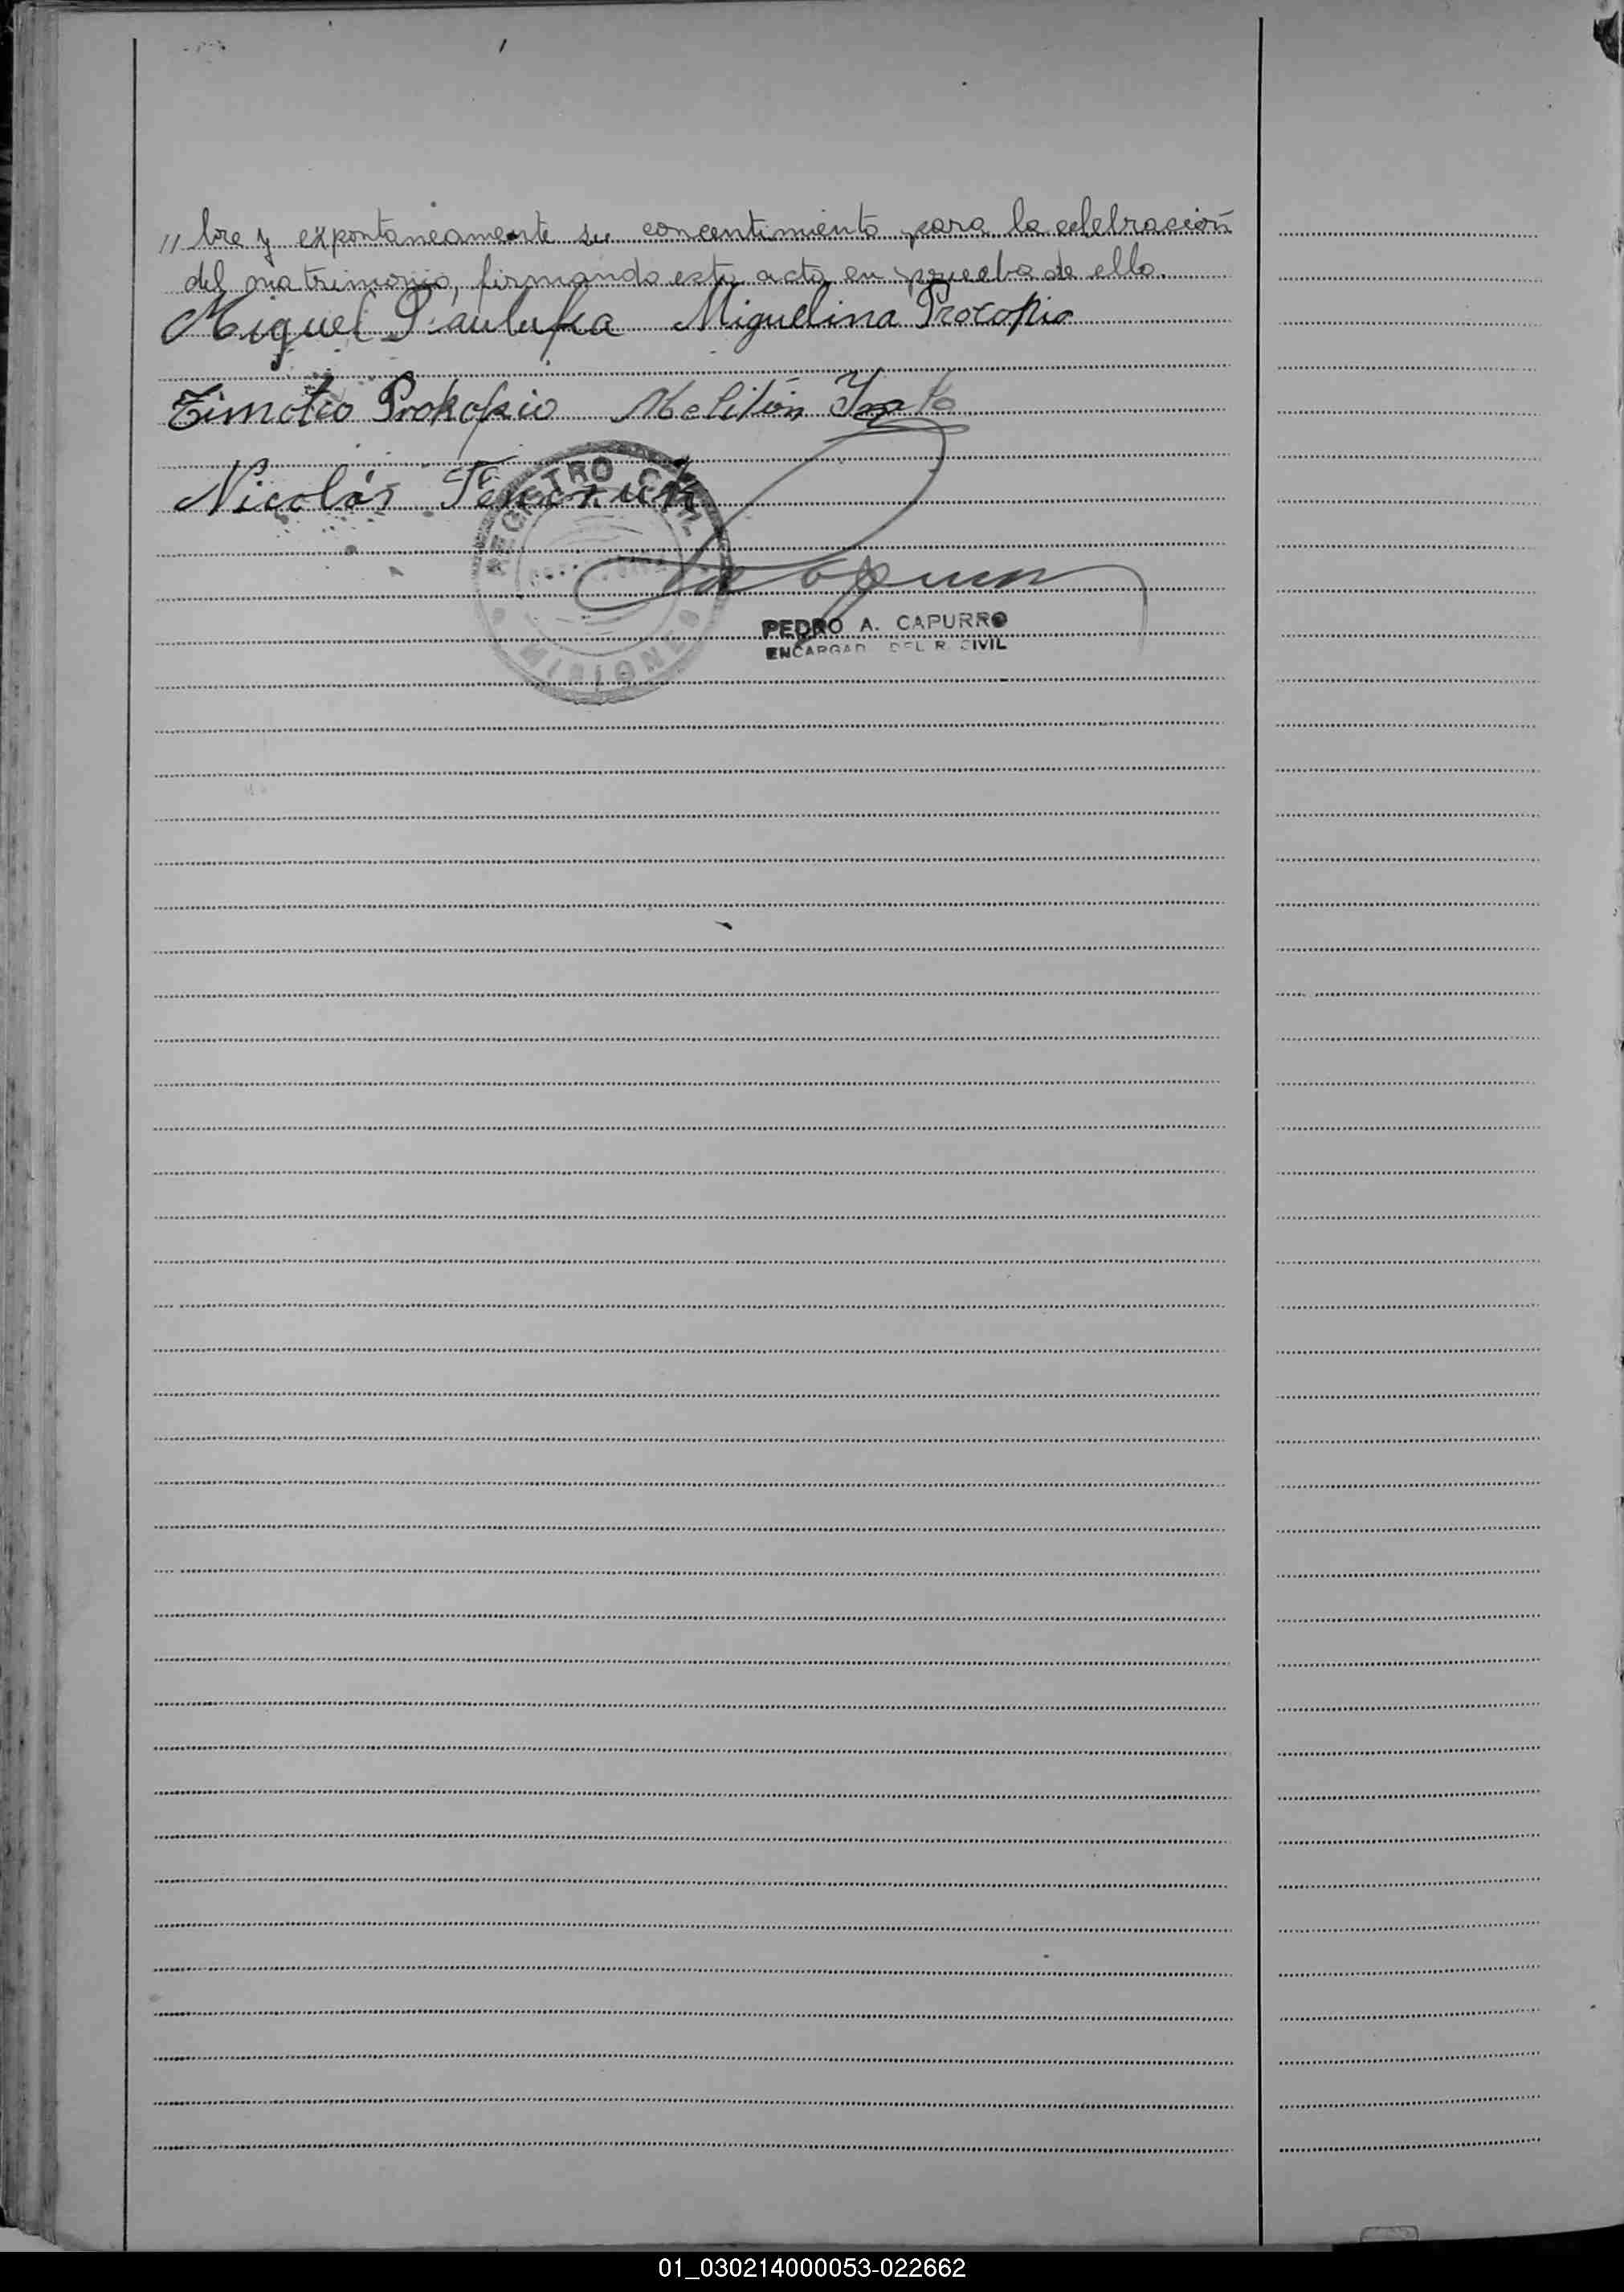 // bre y expontaneamente su concentimiento para la celebración
del matrimonio, firmando esta acta en prueba de ello.
Miguel Miguelina Procopio
Timoteo Prokopio Melitón
Nicolás
REGISTRO CIVIL
MISIONES
PEDRO A. CAPURRO
ENCARGAD DEL R. CIVIL
01_030214000053-022662